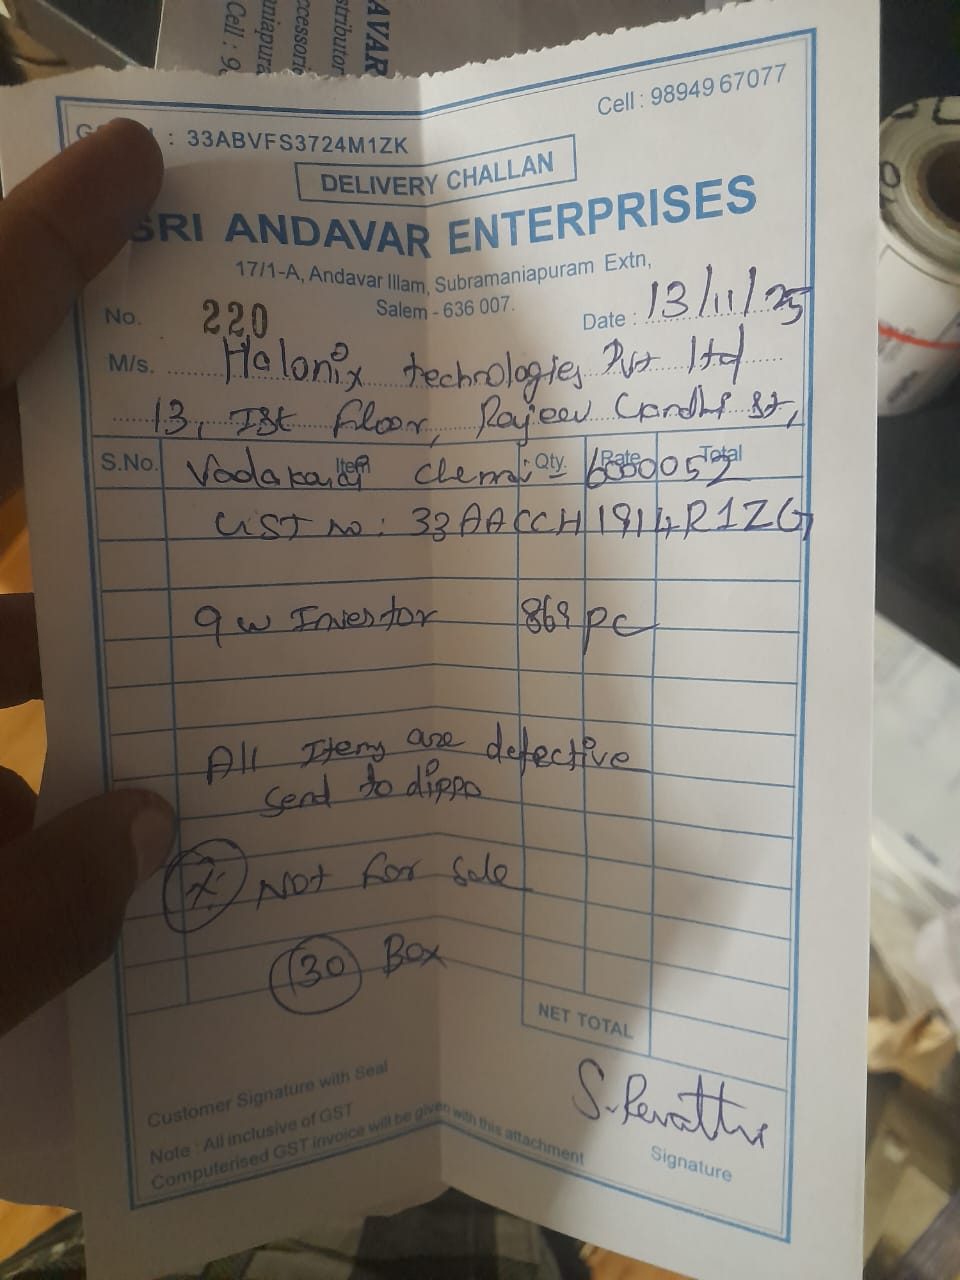 AVAR
stributor
ccessorie
maniapura
Cell : 9
: 33ABVFS3724M1ZK
Cell : 98949 67077
DELIVERY CHALLAN
SRI ANDAVAR ENTERPRISES
17/1-A, Andavar Illam, Subramaniapuram Extn,
Salem - 636 007.
No. 220
Date : 13/11/25
M/s. Halonix technologies Pvt ltd
13, Ist Floor, Rajeev Gandhi st,
S.No. Item Qty. Rate Total
Chennai - 6000052
GST No: 33AACCH1914R1ZG
9 w Investor 869 pc
All Items are defective
send to dippo
Not For Sale
130 Box
NET TOTAL
S. Revathi
Customer Signature with Seal
Note : All inclusive of GST
Computerised GST invoice will be given with this attachment
Signature